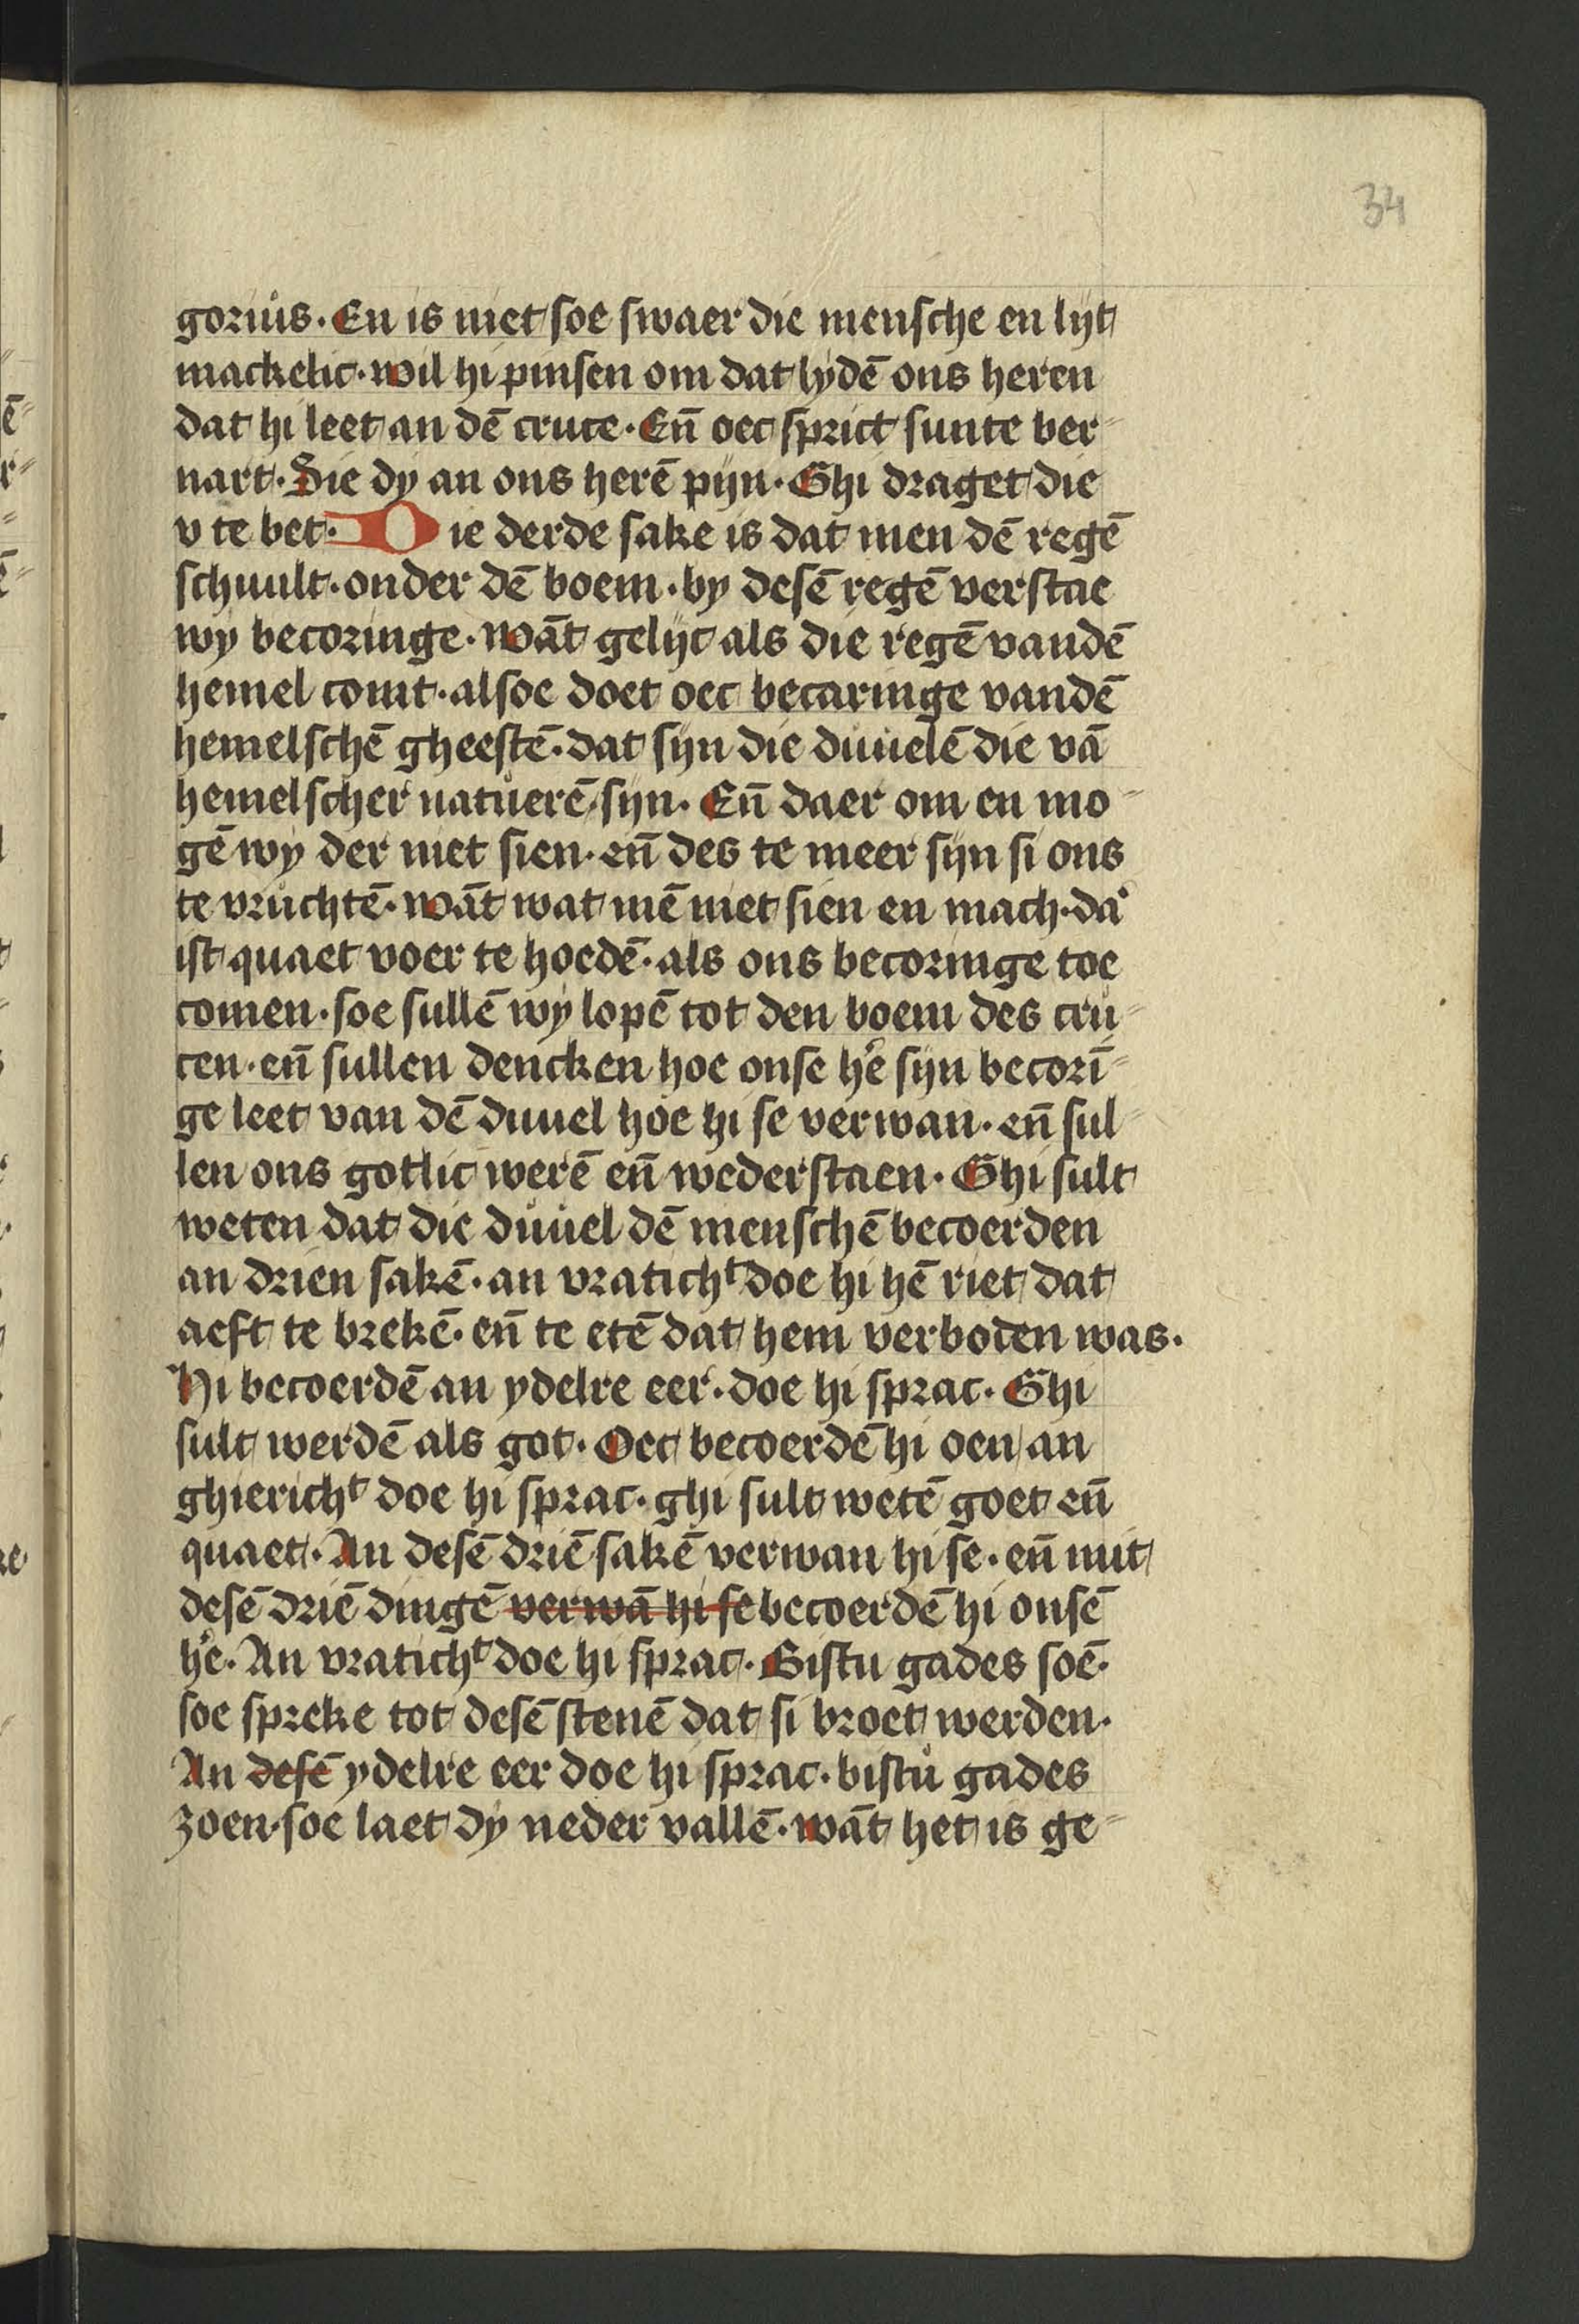 34
goriůs. En is niet soe swaer die mensche en lijt
mackelic. wil hi pinsen om dat lydē ons heren
dat hi leet an dē cruce. Eñ oec sprict sunte ber-
nart. Sie dy an ons herē pijn. Ghi draget die
v te bet. Die derde sake is dat men dē regē
schuult. onder dē boem. by desē regē verstae
wy becoringe. wāt gelijc als die regē vandē
hemel comt. alsoe doet oec becaringe vandē
hemelschē gheestē. dat sijn die duůelē die vā
hemelscher natůerē sijn. Eñ daer om en mo-
gē wy der niet sien. eñ des te meer sijn si ons
te vrůchtē. wāt wat mē niet sien en mach. daͬ
ist quaet voer te hoedē. als ons becoringe toe
comen. soe sullē wy lopē tot den boem des crů-
cen. eñ sullen dencken hoe onse he͛ sijn becorī-
ge leet van dē duuel hoe hi se verwan. eñ sul-
len ons gotlic werē eñ wederstaen. Ghi sult
weten dat die důuel dē menschē becoerden
an drien sakē. an vratichᵗ doe hi hē riet dat
aeft te brekē. eñ te etē dat hem verboden was.
Hi becoerdē an ydelre eer. doe hi sprac. Ghi
sult werdē als got. Oec becoerdē hi oen an
ghierichᵗ doe hi sprac. ghi sult wetē goet eñ
quaet. An desē driē sakē verwan hi se. eñ mit
desē driē dingē verwā hi se becoerdē hi onsē
he͛. An vratichᵗ doe hi sprac. Bistu gades soē.
soe spreke tot desē stenē dat si broet werden.
An desē ydelre eer doe hi sprac. bistů gades
zoen. soe laet dy neder vallē. wāt het is ge-